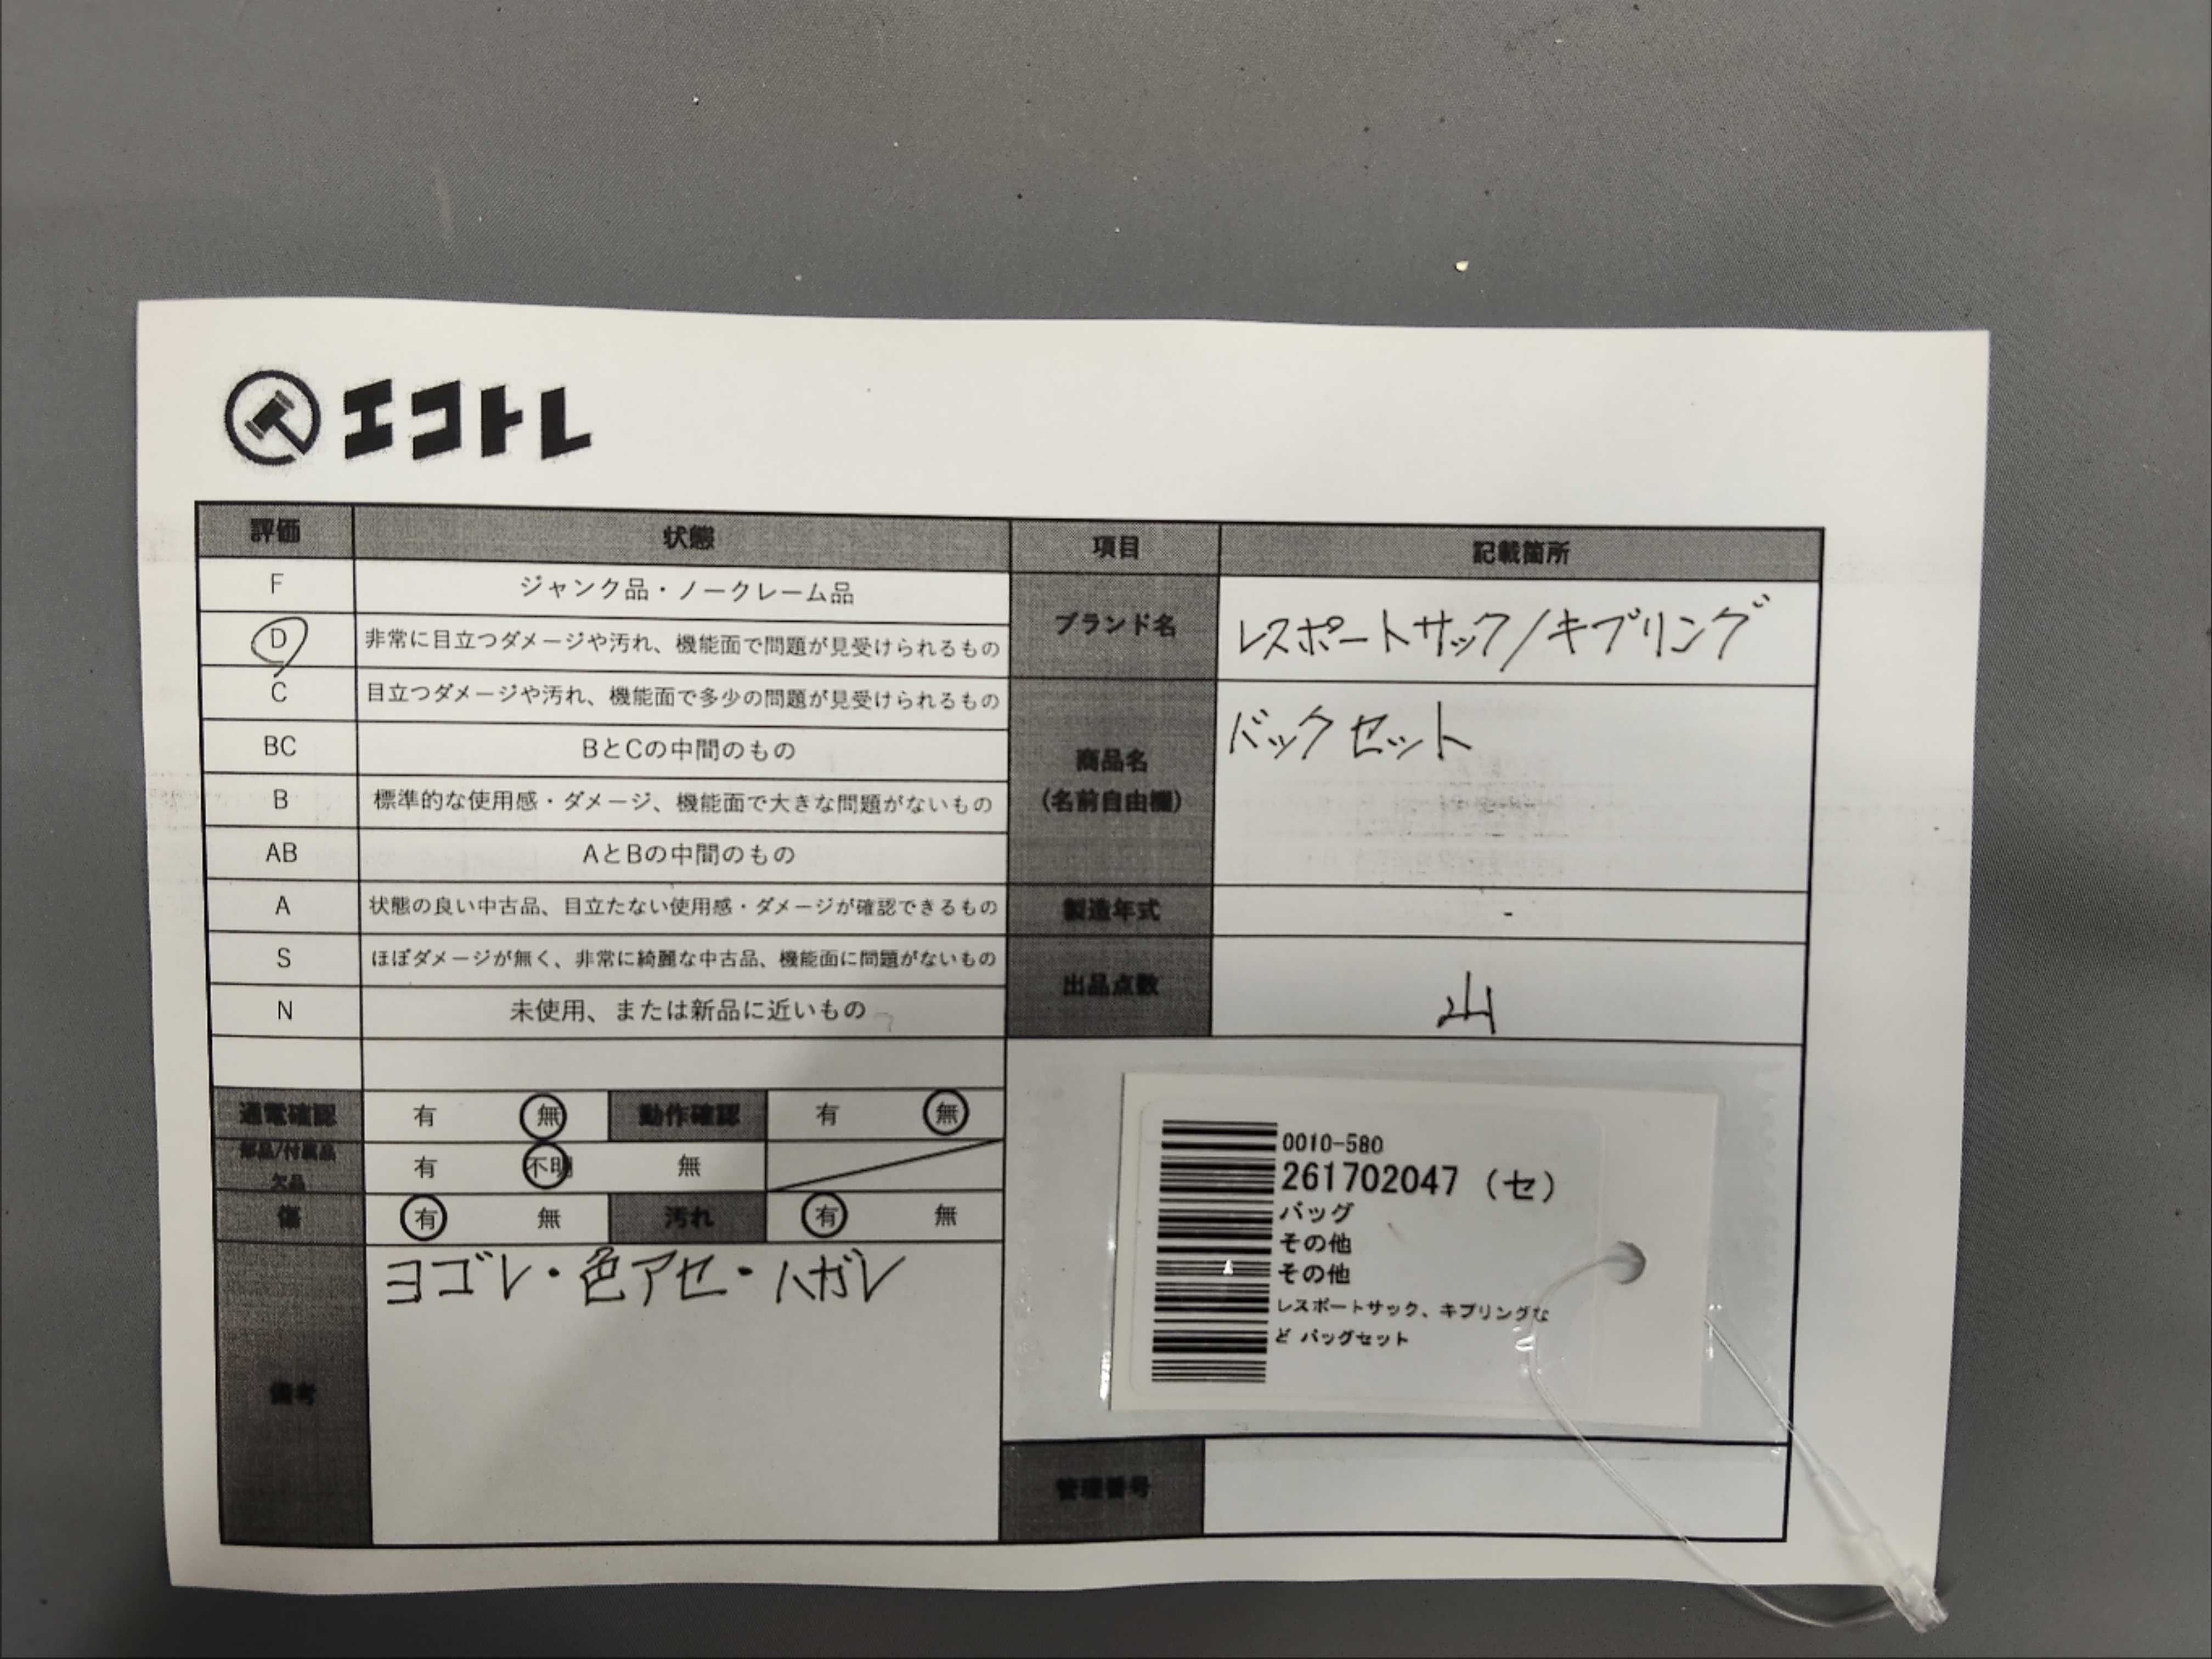 エコトレ
評価 状態
F ジャンク品・ノークレーム品
D 非常に目立つダメージや汚れ、機能面で問題が見受けられるもの
C 目立つダメージや汚れ、機能面で多少の問題が見受けられるもの
BC BとCの中間のもの
B 標準的な使用感・ダメージ、機能面で大きな問題がないもの
AB AとBの中間のもの
A 状態の良い中古品、目立たない使用感・ダメージが確認できるもの
S ほぼダメージが無く、非常に綺麗な中古品、機能面に問題がないもの
N 未使用、または新品に近いもの
通電確認 有 無 動作確認 有 無
部品/付属品 欠品 有 不明 無
傷 有 無 汚れ 有 無
備考 ヨゴレ・色アセ・ハガレ
項目 記載箇所
ブランド名 レスポートサック/キプリング
商品名 バックセット
(名前自由欄)
製造年式 -
出品点数 山
0010-580
261702047 (セ)
バッグ
その他
その他
レスポートサック、キプリングな
ど バッグセット
管理番号